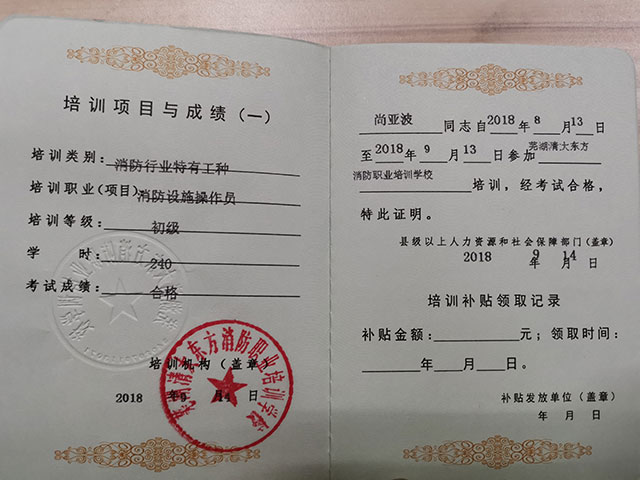 培训项目与成绩（一）
培训类别：消防行业特有工种
培训职业(项目)消防设施操作员
培训等级：初级
学 时：240
考试成绩：合格
培训机构（盖章）
2018 年9 月14日
芜湖清大东方消防职业培训学校
尚亚波 同志自2018年 8 月13日
至2018年 9 月 13日参加 芜湖清大东方
消防职业培训学校 培训，经考试合格，
特此证明。
县级以上人力资源和社会保障部门（盖章）
2018 年 9 月 14 日
培训补贴领取记录
补贴金额： 元；领取时间：
年 月 日。
补贴发放单位（盖章）
年 月 日